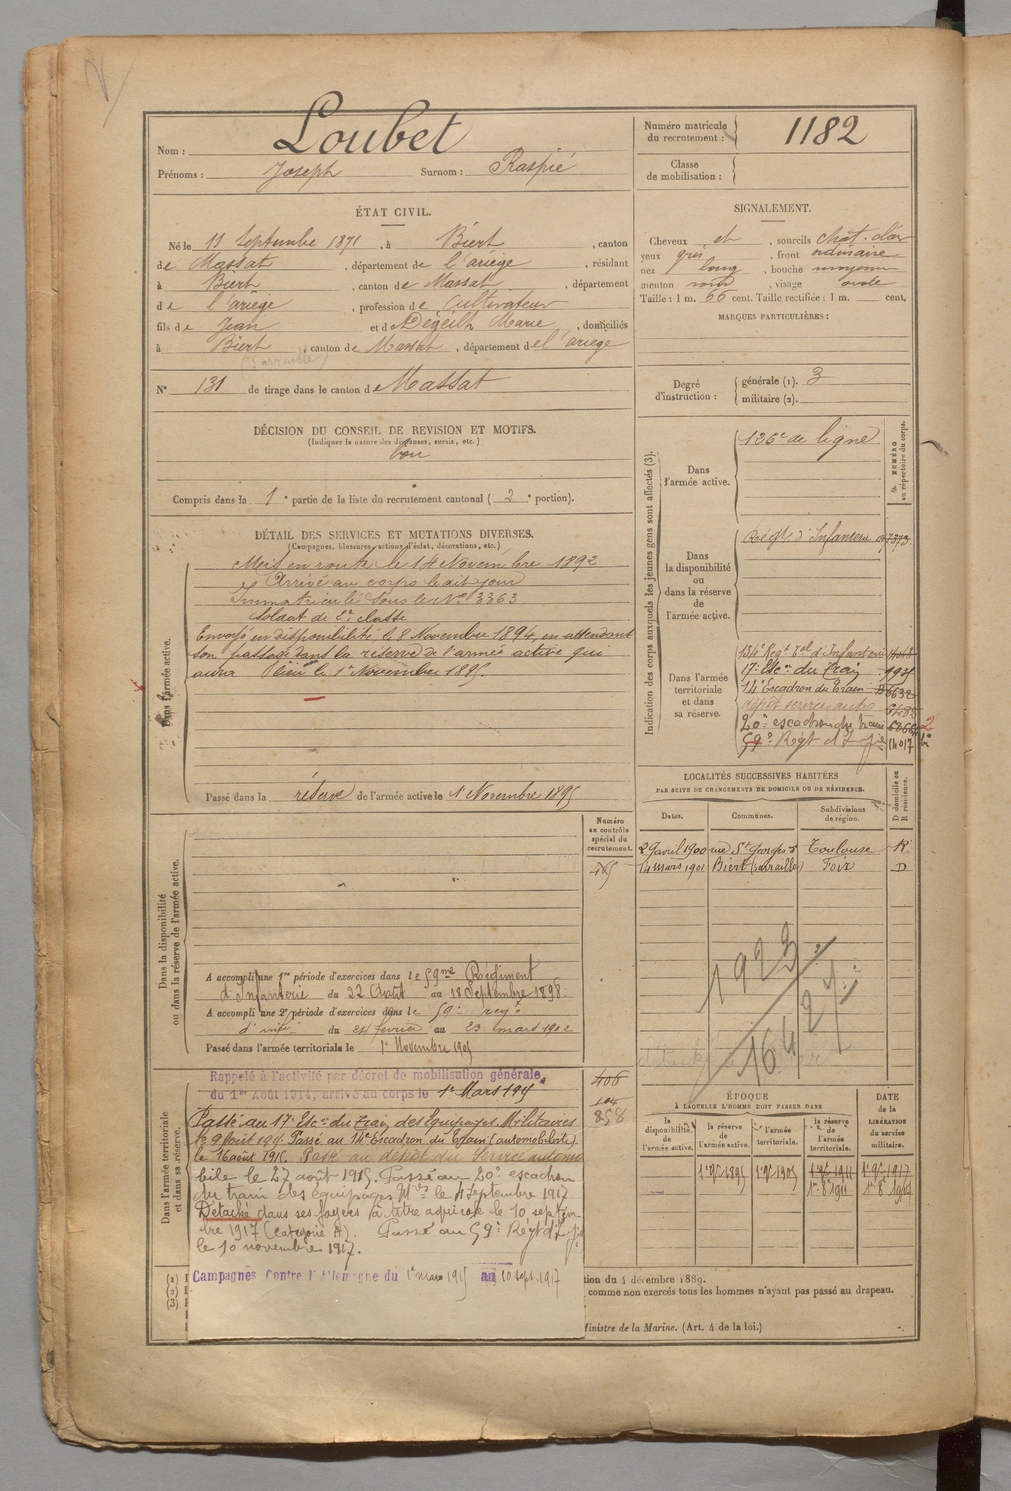 Nom : Loubet
Prénoms : Joseph Surnom : Raspié
Numéro matricule
du recrutement : 1182
Classe
de mobilisation :
ÉTAT CIVIL.
Né le 11 Septembre 1871, à Biert, canton
de Massat, département de l'ariège, résidant
à Biert, canton de Massat, département
de l'ariège, profession de Cultivateur
fils de Jean et de Dégeilh Marie, domiciliés
à Biert, canton de Massat, département de l'ariege
N° 131 de tirage dans le canton de Massat
SIGNALEMENT.
Cheveux et, sourcils chat. clair
yeux gris, front ordinaire
nez long, bouche moyenne
menton rond, visage ovale
Taille : 1 m. 66 cent. Taille rectifiée : 1 m. cent.
MARQUES PARTICULIÈRES :
Degré
d'instruction :
générale (1). 3
militaire (2).
DÉCISION DU CONSEIL DE REVISION ET MOTIFS.
(Indiquer la nature des dispenses, sursis, etc.)
bon
Compris dans la 1e partie de la liste du recrutement cantonal (2e portion).
DÉTAIL DES SERVICES ET MUTATIONS DIVERSES.
(Campagnes, blessures, actions d'éclat, décorations, etc.)
Dans l'armée active.
Mis en route le 14 Novembre 1892
Arrivé au corps le dit jour
Immatriculé sous le N° 3363
Soldat de 2e classe
Envoyé en disponibilité le 8 Novembre 1894, en attendant
son passage dans la réserve de l'armée active qui
aura lieu le 1er Novembre 1895.
Passé dans la réserve de l'armée active le 1 Novembre 1895
Indication des corps auxquels les jeunes gens sont affectés (3).
NUMÉRO
au répertoire du corps.
Dans
l'armée active.
136e de ligne
Dans
la disponibilité
ou
dans la réserve
de
l'armée active.
Régt d'Infanterie
Dans l'armée
territoriale
et dans
sa réserve.
134e Regt Tal d'Infanterie
17e Escon du Train
14e Escadron du Train 6632
dépôt service auto
20e escadron du train
59e Regt d'Inf ie 14017 bis
LOCALITÉS SUCCESSIVES HABITÉES
PAR SUITE DE CHANGEMENTS DE DOMICILE OU DE RÉSIDENCE.
D domicile ou
R résidence.
Dates. Communes. Subdivisions
de région.
29 avril 1900 rue St Georges Toulouse R
14 mars 1901 Biert Foix D
1923
164
Dans la disponibilité
ou dans la réserve de l'armée active.
Numéro
au contrôle
spécial du
recrutement.
A accompli une 1re période d'exercices dans le 59me Régiment
d'Infanterie du 22 Août au 18 Septembre 1898.
A accompli une 2e période d'exercices dans le 59e regt
d'infie du 24 fevrier au 23 mars 1902
Passé dans l'armée territoriale le 1er Novembre 1905
Dans l'armée territoriale
et dans sa réserve.
406
104
858
Rappelé à l'activité par décret de mobilisation générale
du 1er Août 1914, arrivé au corps le 1er Mars 1915
Passé au 17e Escon du Train des Equipages Militaires
le 9 Août 1915. Passé au 14e Escadron du Train (automobiliste)
le 16 août 1915. Passé au dépôt du Service automo
bile le 27 août 1915. Passé au 20e escadron
du train des équipages Mres le 4 Septembre 1917
Détaché dans ses foyers à titre agricole le 10 septem-
bre 1917 (Catégorie A). Passé au 59e Régt d'Inf ie
le 10 novembre 1917.
Campagnes Contre l'Allemagne du 1er mars 1915 au 10 sept. 1917
ÉPOQUE
À LAQUELLE L'HOMME DOIT PASSER DANS
la
disponibilité
de
l'armée active.
la réserve
de
l'armée active.
l'armée
territoriale.
la réserve
de
l'armée
territoriale.
DATE
de la
LIBÉRATION
du service
militaire.
1er 9bre 1895 1er 9bre 1905 1er 9bre 1911 1er 9bre 1917
(1)
(2)
(3)
tion du 4 décembre 1889.
comme non exercés tous les hommes n'ayant pas passé au drapeau.
Ministre de la Marine. (Art. 4 de la loi.)